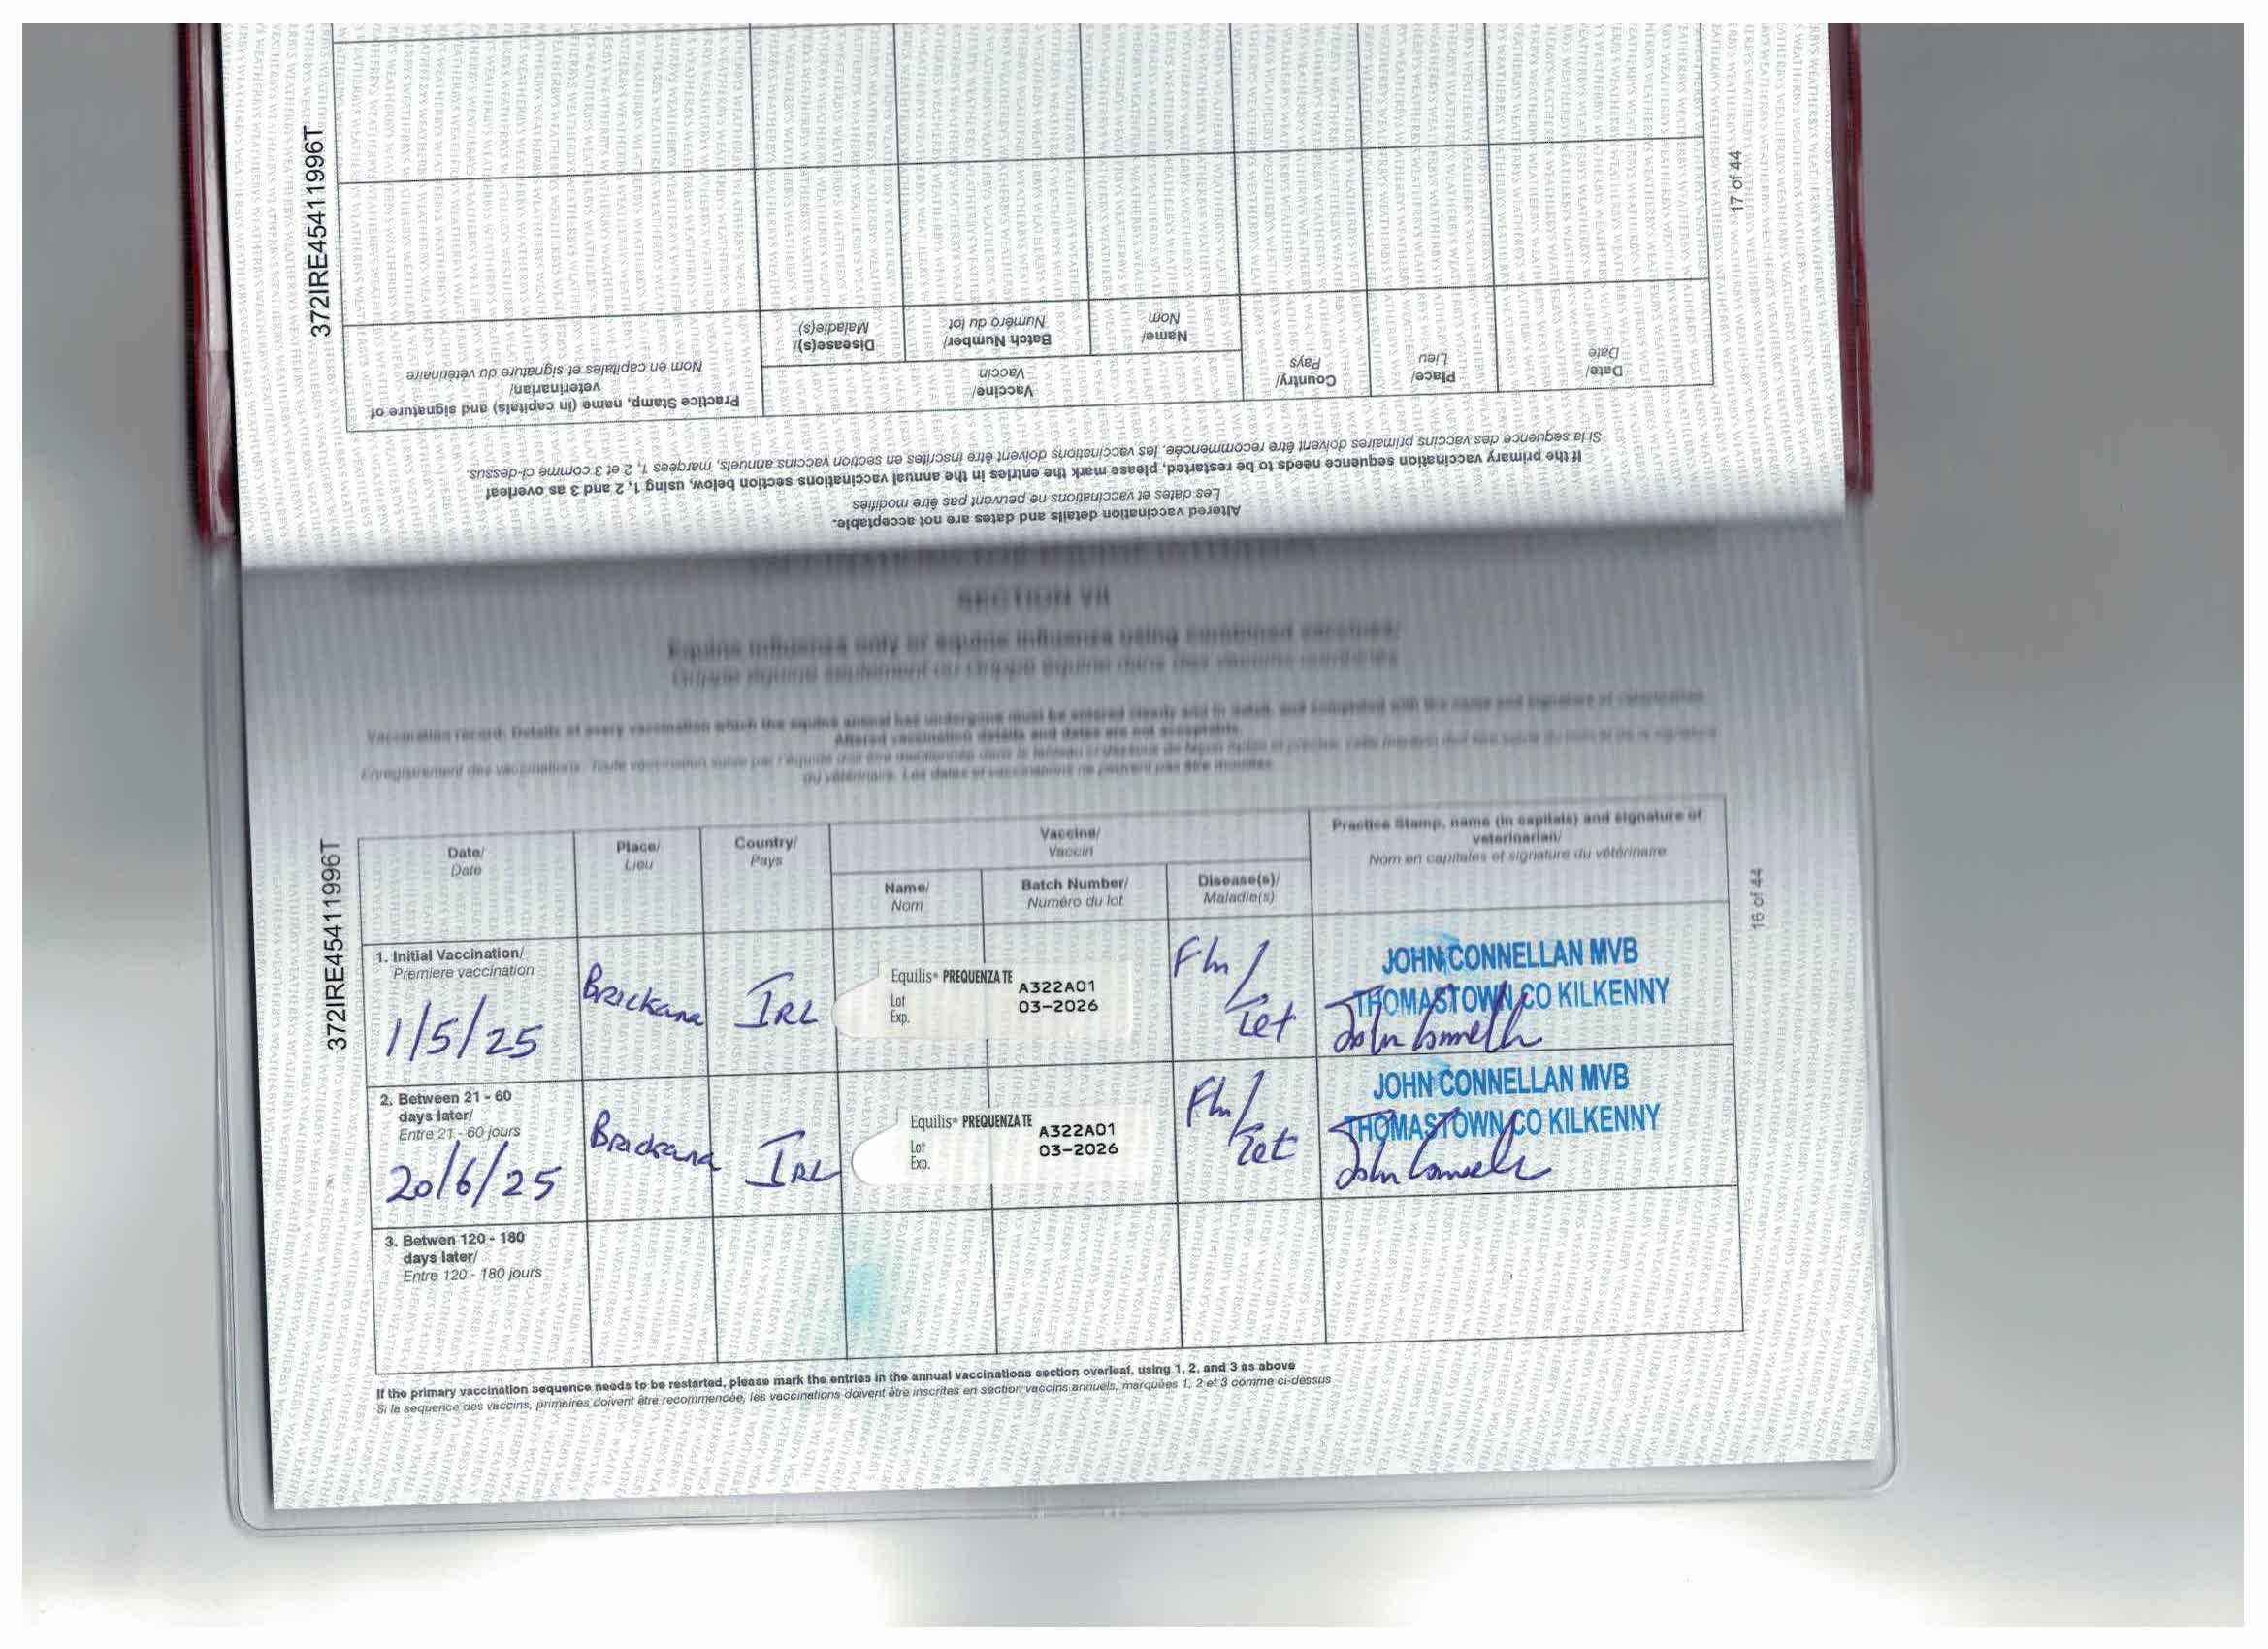 372IRE45411996T
17 of 44
Altered vaccination details and dates are not acceptable.
Les dates et vaccinations ne peuvent pas être modifiés
If the primary vaccination sequence needs to be restarted, please mark the entries in the annual vaccinations section below, using 1, 2 and 3 as overleaf
Si la séquence des vaccins primaires doivent être recommencée, les vaccinations doivent être inscrites en section vaccins annuels, marqées 1, 2 et 3 comme ci-dessus.
Date/
Date
Place/
Lieu
Country/
Pays
Vaccine/
Vaccin
Name/
Nom
Batch Number/
Numéro du lot
Disease(s)/
Maladie(s)
Practice Stamp, name (in capitals) and signature of
veterinarian/
Nom en capitales et signature du vétérinaire
SECTION VII
Equine influenza only or equine influenza using combined vaccines/
Grippe équine seulement ou Grippe équine dans des vaccins combinés
Vaccination record: Details of every vaccination which the equine animal has undergone must be entered clearly and in detail, and completed with the name and signature of veterinarian.
Altered vaccination details and dates are not acceptable.
Enregistrement des vaccinations: Toute vaccination subie par l'équidé doit être mentionnée dans le tableau ci-dessous de façon lisible et précise, cette mention doit être suivie du nom et de la signature
du vétérinaire. Les dates et vaccinations ne peuvent pas être modifiés
372IRE45411996T
16 of 44
Date/
Date
Place/
Lieu
Country/
Pays
Vaccine/
Vaccin
Name/
Nom
Batch Number/
Numéro du lot
Disease(s)/
Maladie(s)
Practice Stamp, name (in capitals) and signature of
veterinarian/
Nom en capitales et signature du vétérinaire
1. Initial Vaccination/
Premiere vaccination
1/5/25
Brickana
IRL
Equilis® PREQUENZA TE
Lot A322A01
Exp. 03-2026
Flu/
Tet
JOHN CONNELLAN MVB
THOMASTOWN CO KILKENNY
2. Between 21 - 60
days later/
Entre 21 - 60 jours
20/6/25
Brickana
IRL
Equilis® PREQUENZA TE
Lot A322A01
Exp. 03-2026
Flu/
Tet
JOHN CONNELLAN MVB
THOMASTOWN CO KILKENNY
3. Betwen 120 - 180
days later/
Entre 120 - 180 jours
If the primary vaccination sequence needs to be restarted, please mark the entries in the annual vaccinations section overleaf, using 1, 2, and 3 as above
Si la séquence des vaccins, primaires doivent être recommencée, les vaccinations doivent être inscrites en section vaccins annuels, marquées 1, 2 et 3 comme ci-dessus